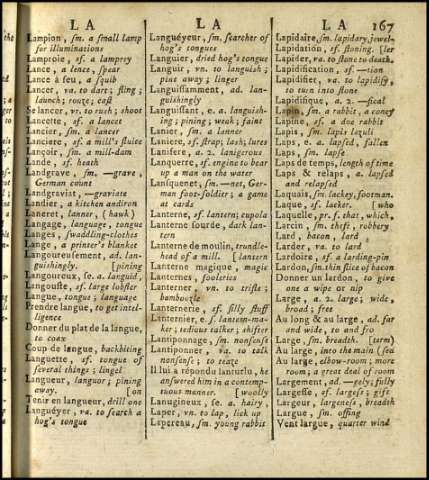 L A
L A
L A 167
Lampion, sm. a small lamp
for illuminations
Lamproie, sf. a lamprey
Lance, a lance, spear
Lance à feu, a squib
Lancer, va. to dart; fling;
launch; rouze; cast
Se lancer, vr. to rush; shoot
Lancette, sf. a lancet
Lancier, sm. a lancer
Lanciere, sf. a mill's sluice
Lançoir, sm. a mill-dam
Lande, sf. heath
Landgrave, sm. —grave,
German count
Landgraviat, —graviate
Landier, a kitchen andiron
Laneret, lanner, (hawk)
Langage, language, tongue
Lange, swaddling-clothes
Lange, a printer's blanket
Langoureusement, ad. lan-
guishingly. [pining
Langoureux, se, a. languid,
Langouste, sf. large lobster
Langue, tongue; language
Prendre langue, to get intel-
ligence
Donner du plat de la langue,
to coax
Coup de langue, backbiting
Languette, sf. tongue of
several things; lingel
Langueur, languor; pining
away. [on
Tenir en langueur, drill one
Languéyer, va. to search a
hog's tongue
Languéyeur, sm. searcher of
hog's tongues
Languier, dried hog's tongue
Languir, vn. to languish;
pine away; linger
Languissamment, ad. lan-
guishingly
Languissant, e, a. languish-
ing; pining; weak; faint
Lanier, sm. a lanner
Laniere, sf. strap; lash; lures
Lanifere, a. 2. lanigerous
Lanquerre, sf. engine to bear
up a man on the water
Lansquenet, sm.—net, Ger-
man foot-soldier; a game
at cards
Lanterne, sf. lantern; cupola
Lanterne sourde, dark lan-
tern
Lanterne de moulin, trundle-
head of a mill. [lantern
Lanterne magique, magic
Lanternes, fooleries
Lanterner, vn. to trifle;
bamboozle
Lanternerie, sf. silly stuff
Lanternier, e, s. lantern-ma-
ker; tedious talker; shifter
Lantiponnage, sm. nonsense
Lantiponner, va. to talk
nonsense; to teaze
Il lui a répondu lanturlu, he
answered him in a contemp-
tuous manner. [woolly
Lanugineux, se, a. hairy,
Laper, vn. to lap, lick up
Lapereau, sm. young rabbit
Lapidaire, sm. lapidary, jewel-
Lapidation, sf. stoning. [ler
Lapider, va. to stone to death.
Lapidification, sf. —tion
Lapidifier, va. to lapidify,
to turn into stone
Lapidifique, a. 2. —fical
Lapin, sm. a rabbit, a coney
Lapine, sf. a doe rabbit
Lapis, sm. lapis lazuli
Laps, e, a. lapsed, fallen
Laps, sm. lapse
Laps de temps, length of time
Laps & relaps, a. lapsed
and relapsed
Laquais, sm. lackey, footman.
Laque, sf. lacker. [who
Laquelle, pr. f. that, which,
Larcin, sm. theft, robbery
Lard, bacon, lard
Larder, va. to lard
Lardoire, sf. a larding-pin
Lardon, sm. thin slice of bacon
Donner un lardon, to give
one a wipe or nip
Large, a. 2. large; wide,
broad; free
Au long & au large, ad. far
and wide, to and fro
Large, sm. breadth. [term)
Au large, into the main (sea
Au large, elbow-room; more
room; a great deal of room
Largement, ad. —gely; fully
Largesse, sf. largess; gift
Largeur, largeness, breadth
Largue, sm. offing
Vent largue, quarter wind